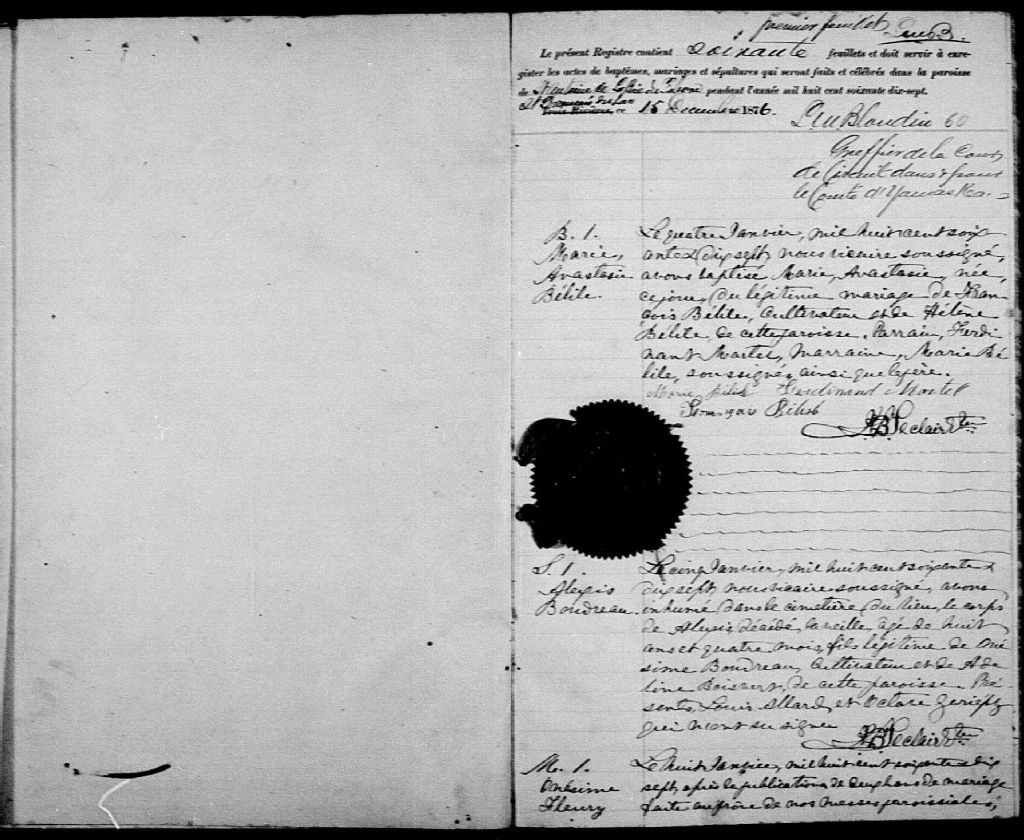 premier feuillet
Le présent Registre contient soixante feuillets et doit servir à enre-
gister les actes de baptêmes, mariages et sépultures qui seront faits et célébrés dans la paroisse
de St Antoine de la Baie du Febvre pendant l'année mil huit cent soixante dix-sept.
St François du Lac
ce 15 Decembre 1876.
Blondin
Greffier de la Cour
de Circuit dans & pour
le Comté d'Yamaska
B. 1.
Marie,
Avastasie
Bélile.
Le quatre Janvier, mil huit cent soix
ante & dix sept, nous vicaire soussigné,
avons baptisé Marie, Avastasie, née
ce jour, du légitime mariage de Fran
cois Bélile, cultivateur et de Hélène
Bélile, de cette paroisse. Parrain, Ferdi
nant Martel, Marraine, Marie Bé
lile, soussignés ainsi que le père.
Marie Bélile Ferdinand Martel
François Bélisle
Leclair Ptre
S. 1.
Alexis
Boudreau
Le cinq Janvier, mil huit cent soixante &
dix sept, nous vicaire soussigné, avons
inhumé dans le cimetière du lieu, le corps
de Alexis, décédé, la veille, âgé de huit
ans et quatre mois, fils légitime de Oné
sime Boudreau, cultivateur et de Ade
line Boisvert, de cette paroisse. Pré
sents, Louis Allard, et Octave
qui n'ont su signer
Leclair Ptre
M. 1.
Onésime
Fleury
Le huit Janvier, mil huit cent soixante & dix
sept, après la publication de deux bans de mariage
faite au prône de nos messes paroissiales,